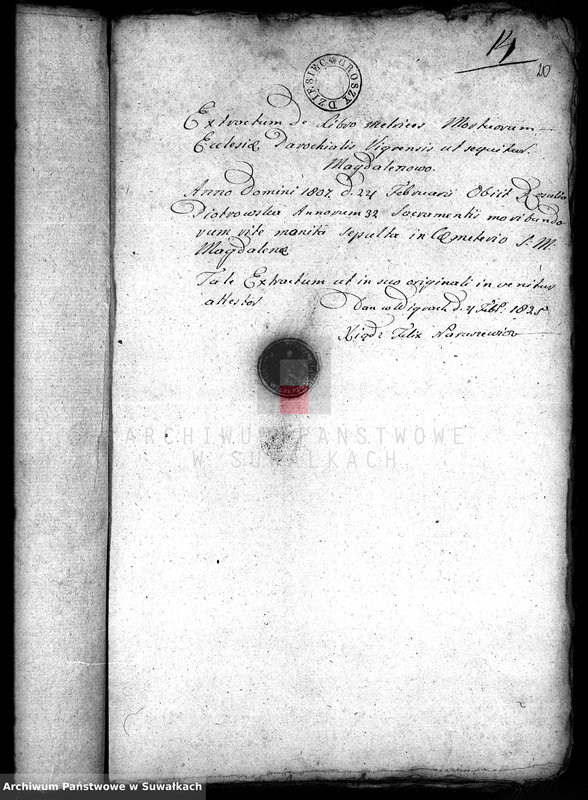 14
20
DZIESIEC GROSZY
Extractum de Libro metrices Mortuorum
Ecclesiæ Parochialis Vigrensis ut sequitur.
Magdalenowo.
Anno Domini 1807. d. 24 Februarii Obiit Rosalia
Piotrowska Annorum 32 Sacramentis moribundo
rum rite munita sepulta in Cœmeterio S. M.
Magdalenæ
Tale Extractum ut in suo originali in venitur
attestor
Dan w Wigrach d. 4 Febr. 1825
Xiądz Felix Naruszewicz
ARCHIWUM PAŃSTWOWE
W SUWAŁKACH
Archiwum Państwowe w Suwałkach